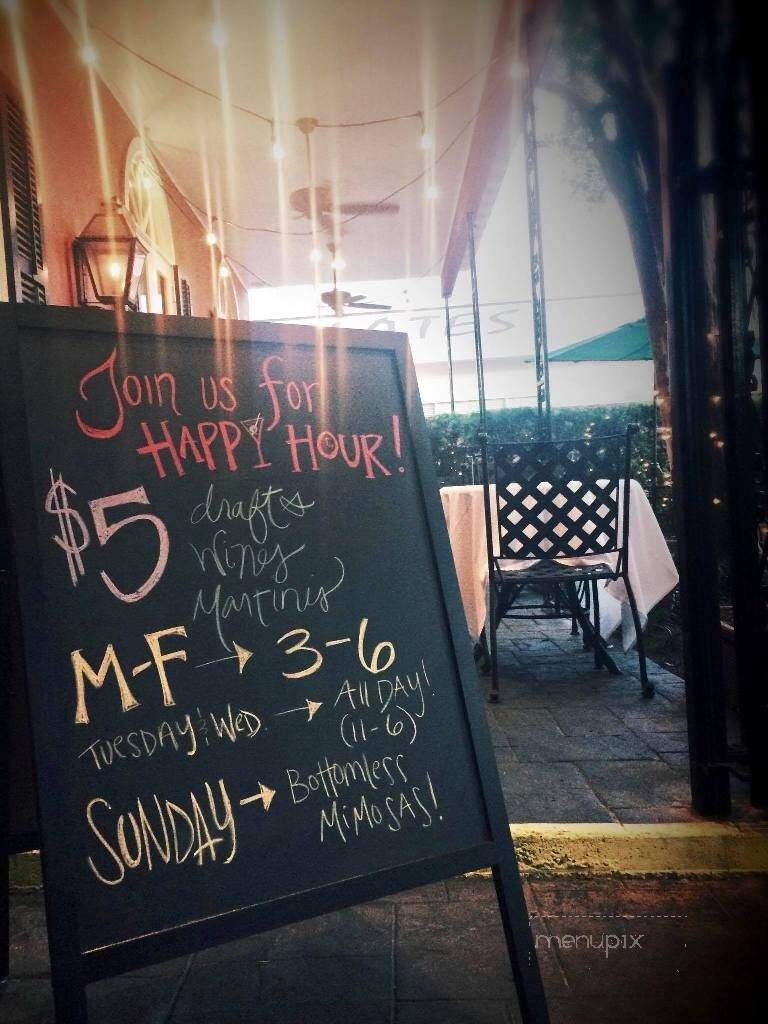 Join us for
HAPPY HOUR!
$5 drafts
wines
Martinis
M-F → 3-6
TUESDAY & WED. → All DAY!
(11-6)
SUNDAY → Bottomless
MiMOSAS!
menupix